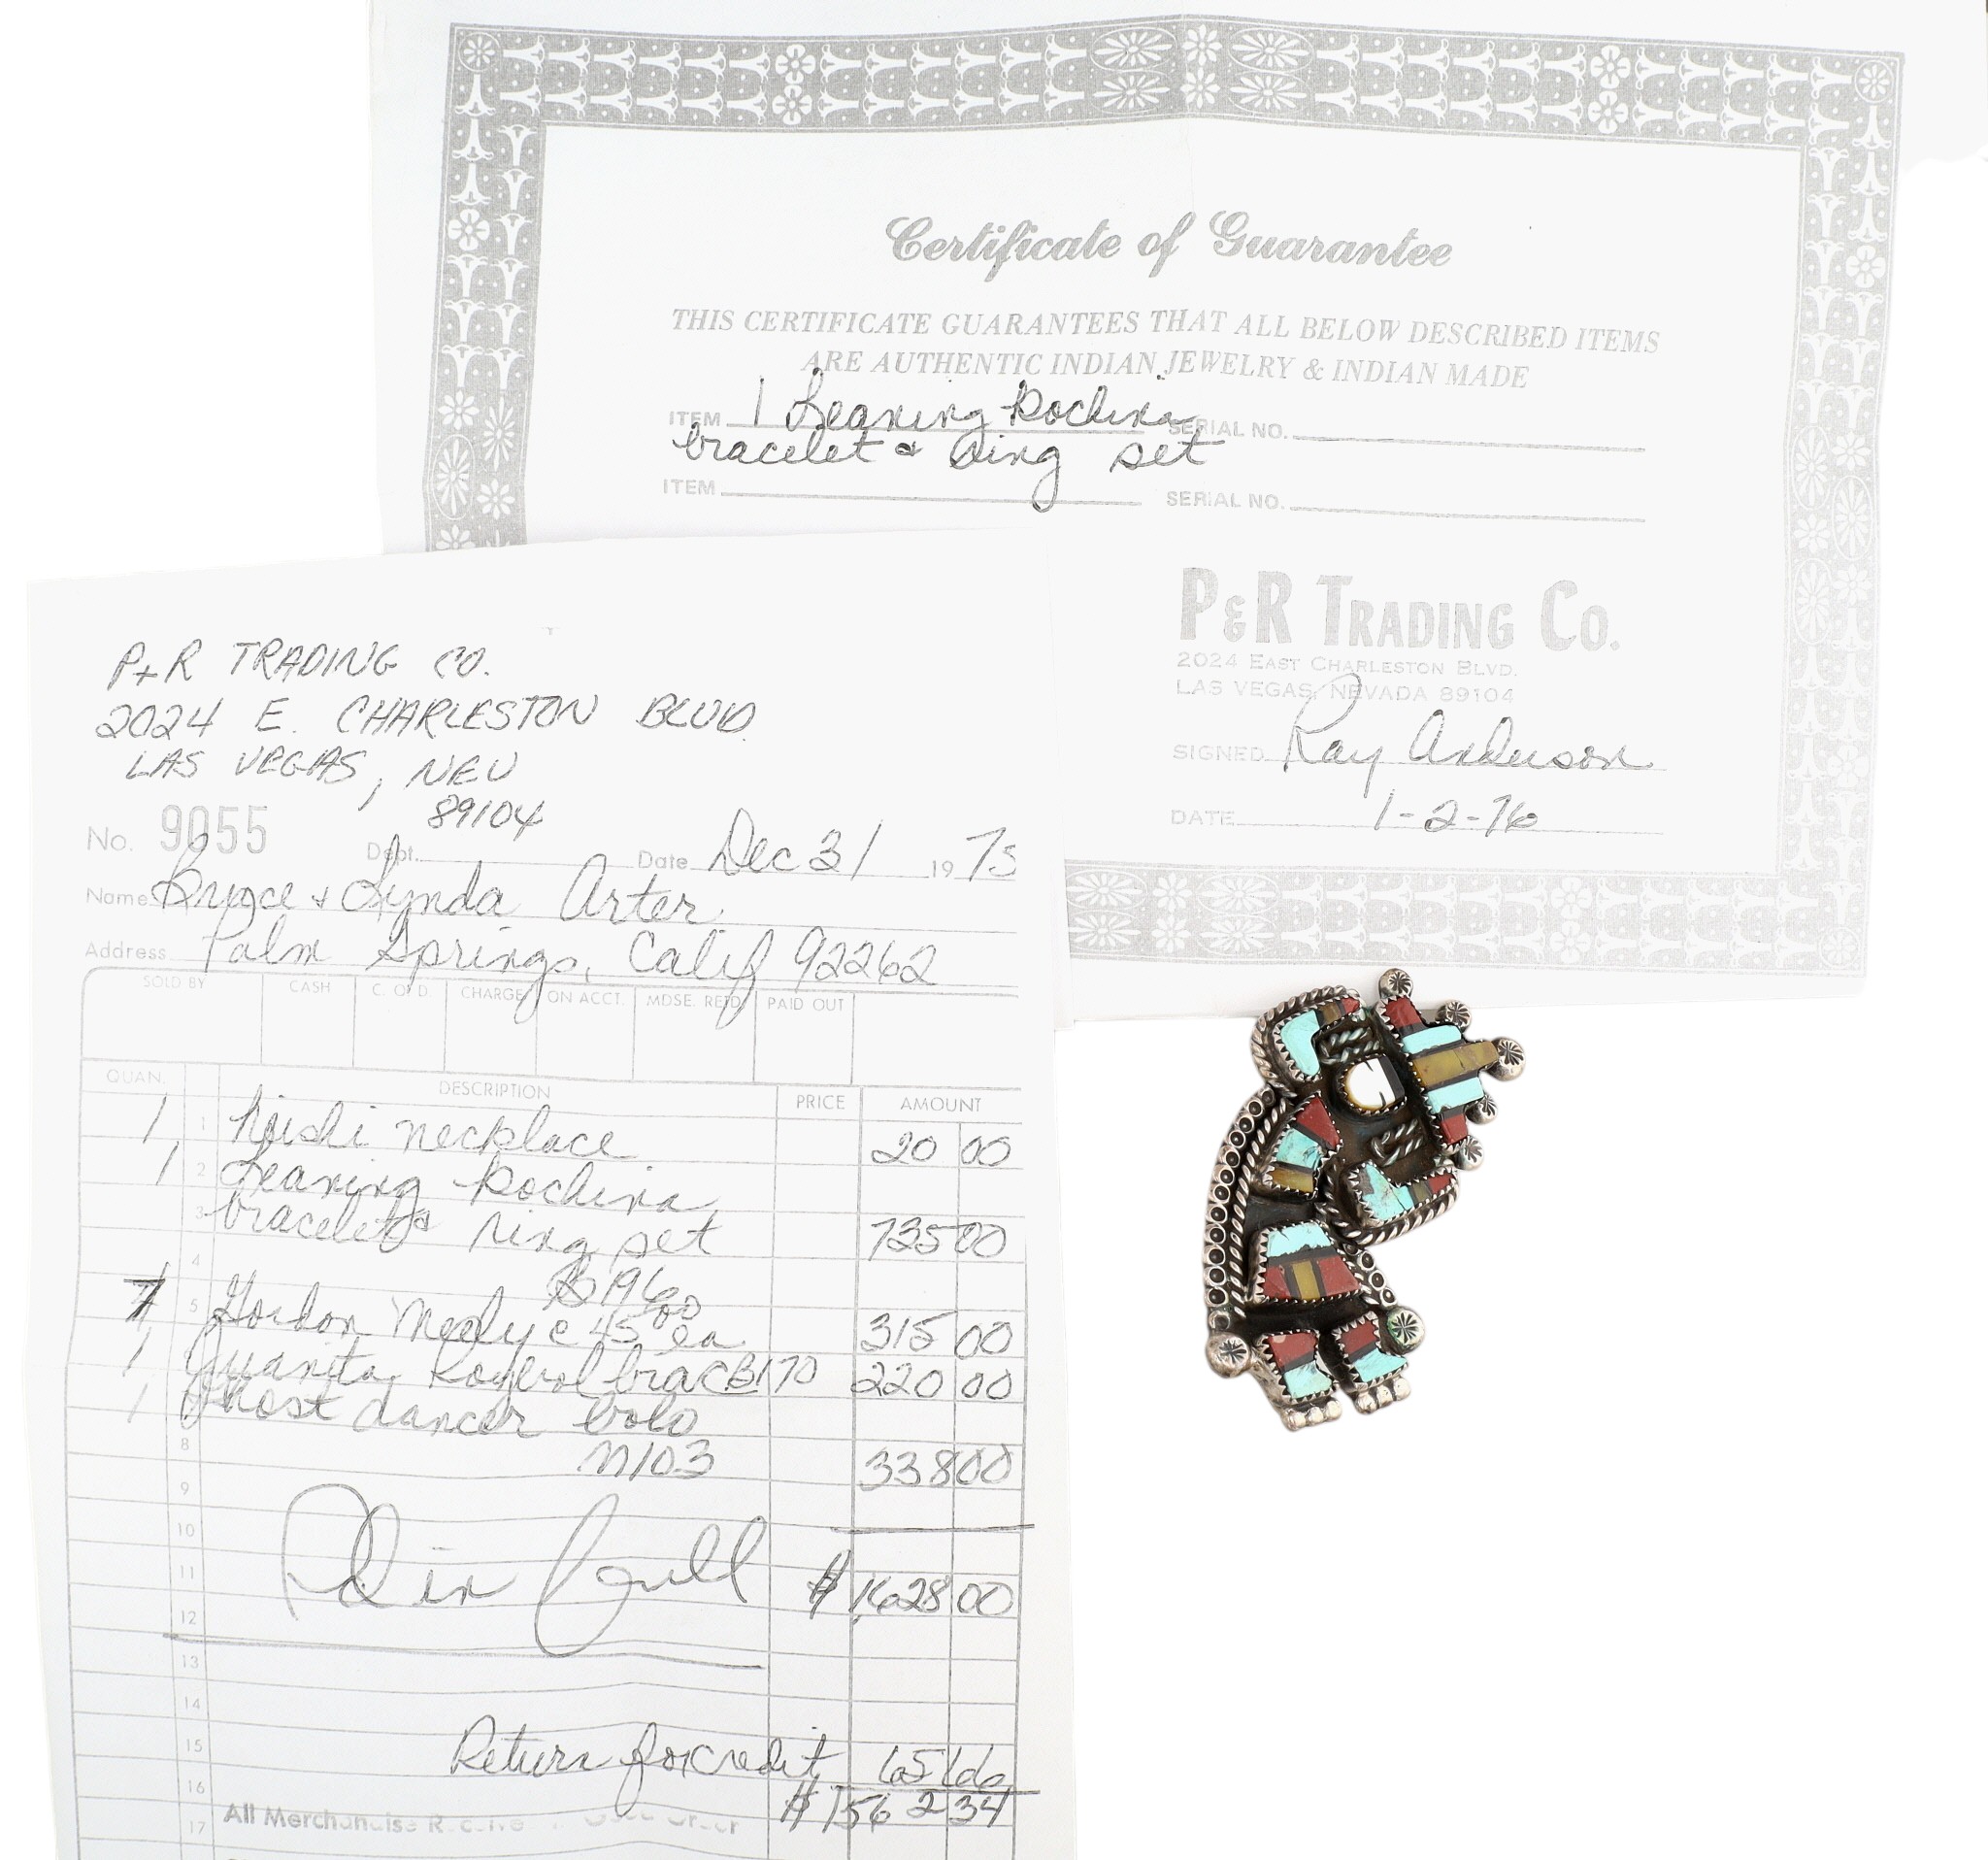 Certificate of Guarantee
THIS CERTIFICATE GUARANTEES THAT ALL BELOW DESCRIBED ITEMS
ARE AUTHENTIC INDIAN JEWELRY & INDIAN MADE
ITEM 1 Leaning Kochina SERIAL NO.
bracelet & Ring set
ITEM SERIAL NO.
P&R TRADING CO.
2024 EAST CHARLESTON BLVD.
LAS VEGAS, NEVADA 89104
SIGNED Ray Anderson
DATE 1-2-76
P+R TRADING CO.
2024 E. CHARLESTON BLVD.
LAS VEGAS, NEV
89104
No. 9055 Dept. Date Dec 31 1975
Name Bryce & Lynda Arter
Address Palm Springs, Calif 92262
SOLD BY CASH C. O. D CHARGE ON ACCT. MDSE. RETD. PAID OUT
QUAN. DESCRIPTION PRICE AMOUNT
1 1 necklace 20 00
1 2 Leaning Kochina
3 bracelet & ring set 735 00
4 B 196
7 5 Gordon @ 45 00 ea 315 00
1 brac B170 220 00
1 Ghost dancer bolo
8 N103 338 00
9
10
11 $ 1,628 00
12
13
14
15 Return for credit 65 66
16 $ 1562 34
17 All Merchandise